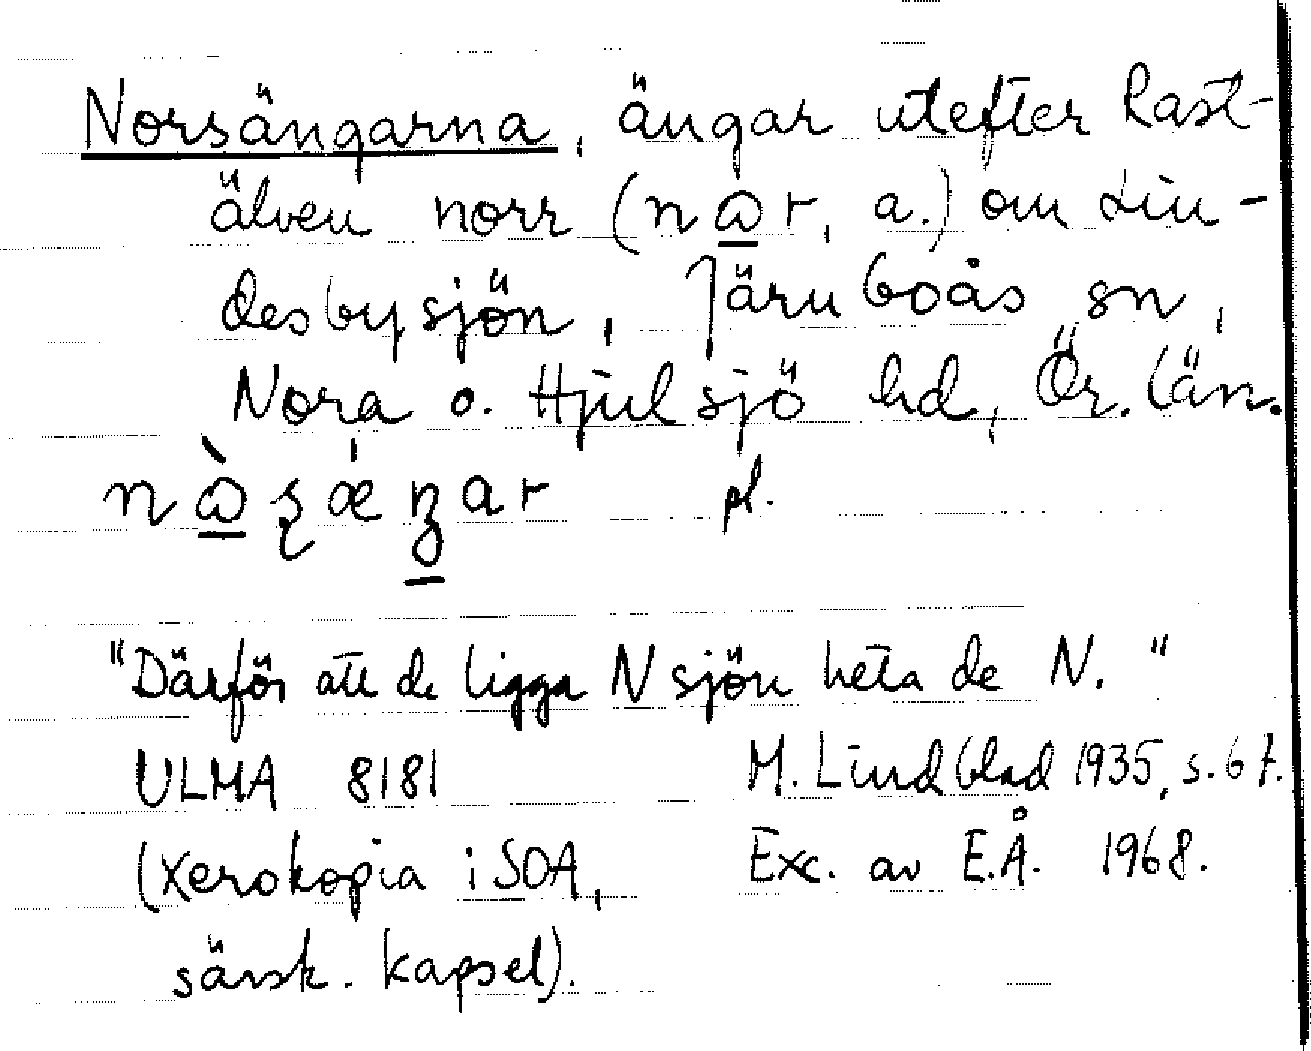 Norsängarna, ängar utefter Rast-
älven norr (nɷr, a.) om Lin-
desbysjön, Järnboås sn,
Nora o. Hjulsjö hd, Ör. län.
pl.
"Därför att de ligga N sjön heta de N."
ULMA 8181 M. Lindblad 1935, s. 67.
(Xerokopia i SOA, Exc. av E.Å. 1968.
särsk. kapsel).